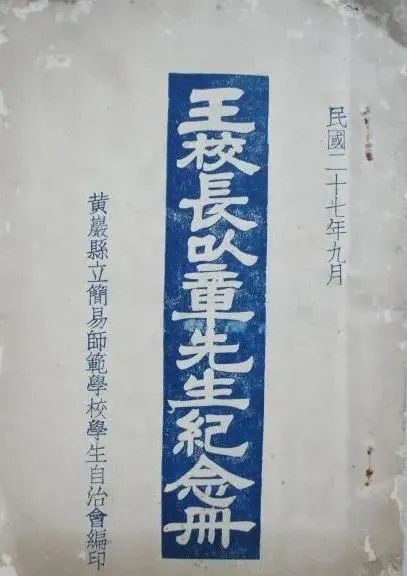 民國二十七年九月
王校長以章先生紀念冊
黃巖縣立簡易師範學校學生自治會編印